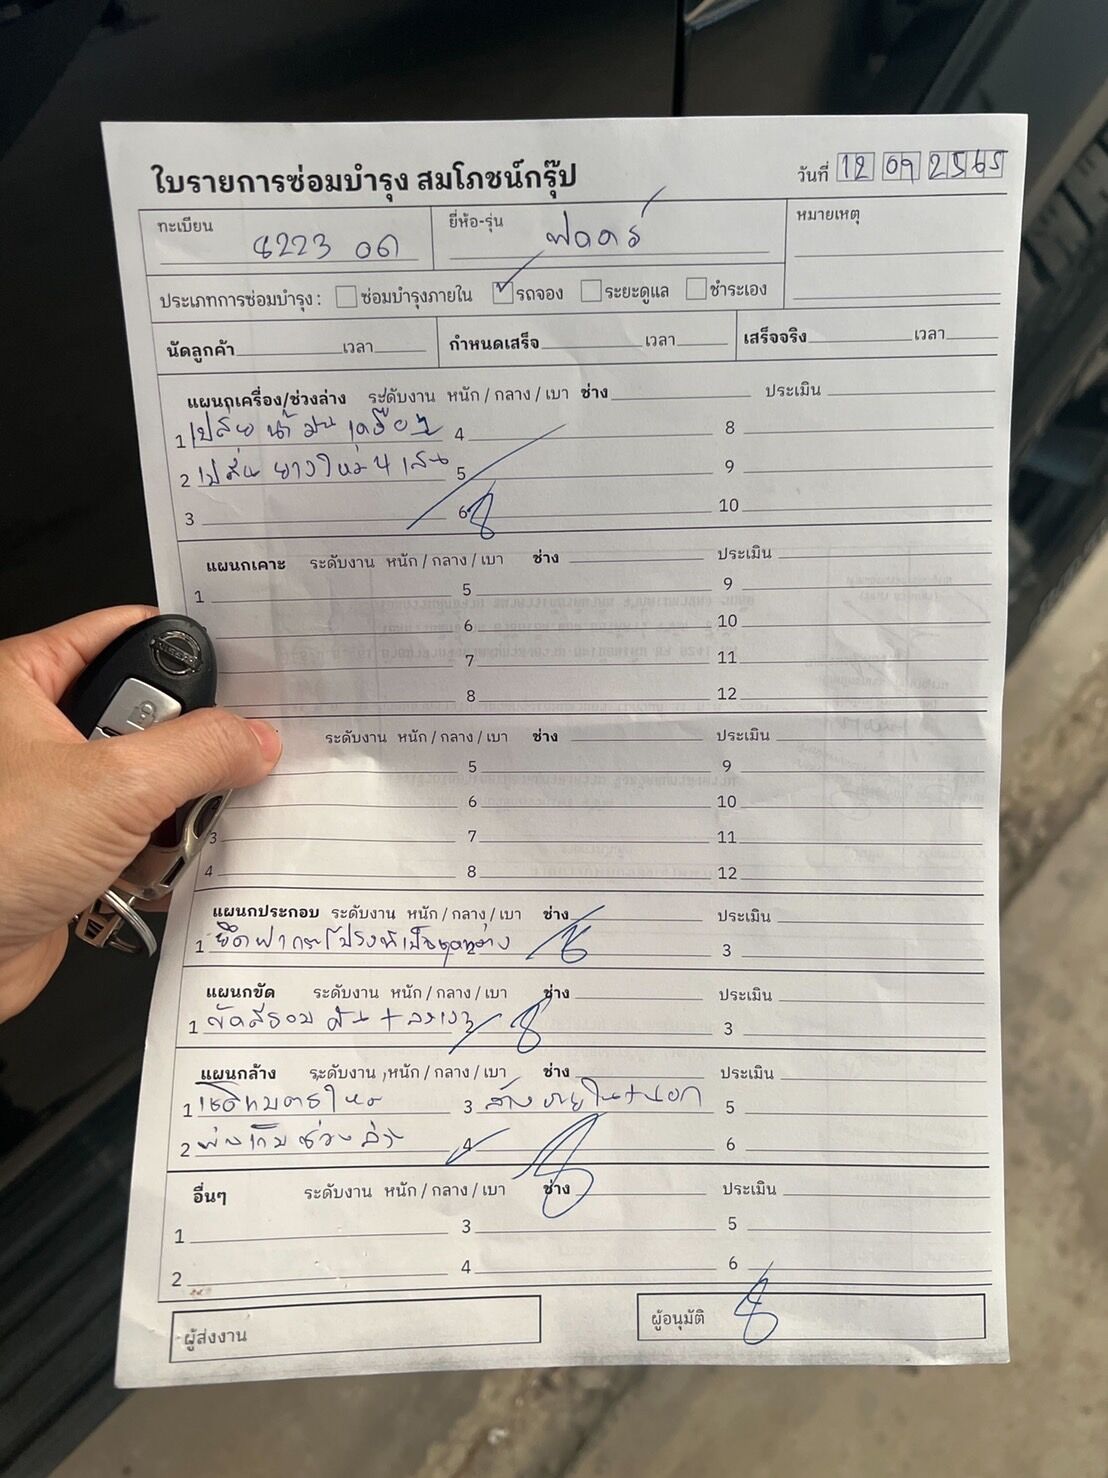 ใบรายการซ่อมบำรุง สมโภชน์กรุ๊ป
วันที่ 12 09 2565
ทะเบียน 8223
ยี่ห้อ-รุ่น
หมายเหตุ
ประเภทการซ่อมบำรุง : ซ่อมบำรุงภายใน รถจอง ระยะดูแล ชำระเอง
นัดลูกค้า เวลา กำหนดเสร็จ เวลา เสร็จจริง เวลา
แผนกเครื่อง/ช่วงล่าง ระดับงาน หนัก / กลาง / เบา ช่าง ประเมิน
1 น้ำมันเครื่อง 4 8
2 ยางใหม่ 4 เส้น 5 9
3 6 10
แผนกเคาะ ระดับงาน หนัก / กลาง / เบา ช่าง ประเมิน
1 5 9
6 10
7 11
8 12
ระดับงาน หนัก / กลาง / เบา ช่าง ประเมิน
5 9
2 6 10
3 7 11
4 8 12
แผนกประกอบ ระดับงาน หนัก / กลาง / เบา ช่าง ประเมิน
1 ยึดฝากระโปรง 3
แผนกขัด ระดับงาน หนัก / กลาง / เบา ช่าง ประเมิน
1 ขัดสีรอบคัน + ลงเงา 3
แผนกล้าง ระดับงาน หนัก / กลาง / เบา ช่าง ประเมิน
1 3 ล้างภายใน+นอก 5
2 พ่นกันช่วงล่าง 4 6
อื่นๆ ระดับงาน หนัก / กลาง / เบา ช่าง ประเมิน
1 3 5
2 4 6
ผู้ส่งงาน
ผู้อนุมัติ